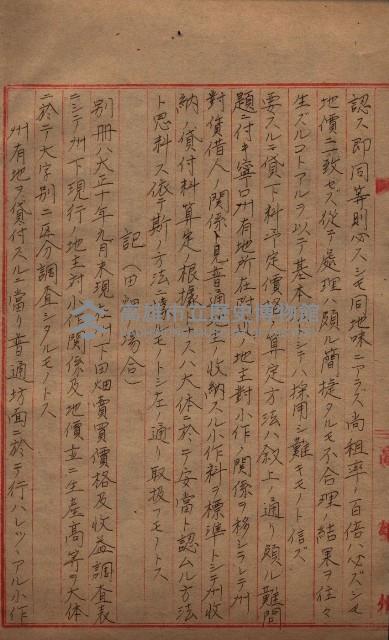 認ス即同等則必スシモ同地味ニアラス尚租率ノ百倍ハ必ズシモ
地價ニ一致セズ從テ處理ハ頗ル簡捷タルモ不合理ノ結果ヲ往々
生ズルコトアルヲ以テ基本トシテハ採用シ難キモノト信ズ
要スルニ貸下料予定價格ノ算定方法ハ敘上ノ通リ頗ル難問
題ニ付キ寧ロ州有地所在附近ノ地主對小作ノ關係ヲ移シテ州
對貸借人ノ關係ト見普通収納スル小作料ヲ標準トシテ州收
納ノ貸付料算定ノ根據トスハ大体ニ於テ妥當ト認ムル方法
ト思料ス依テ斯ノ方法ニ據ルモノトシ左ノ通リ取扱フモノトス
記(田畑ノ場合)
別冊ハ大正十年九月末現在州下田畑賣買價格及收益調査表
ニシテ州下現行ノ地主對小作關係及地價並ニ生産高等ヲ大体
ニ於テ大字別ニ區分調査シタルモノトス
州有地ヲ貸付スルニ當リ普通坊面ニ於テ行ハレツヽアル小作
高雄市立歷史博物館
高雄州